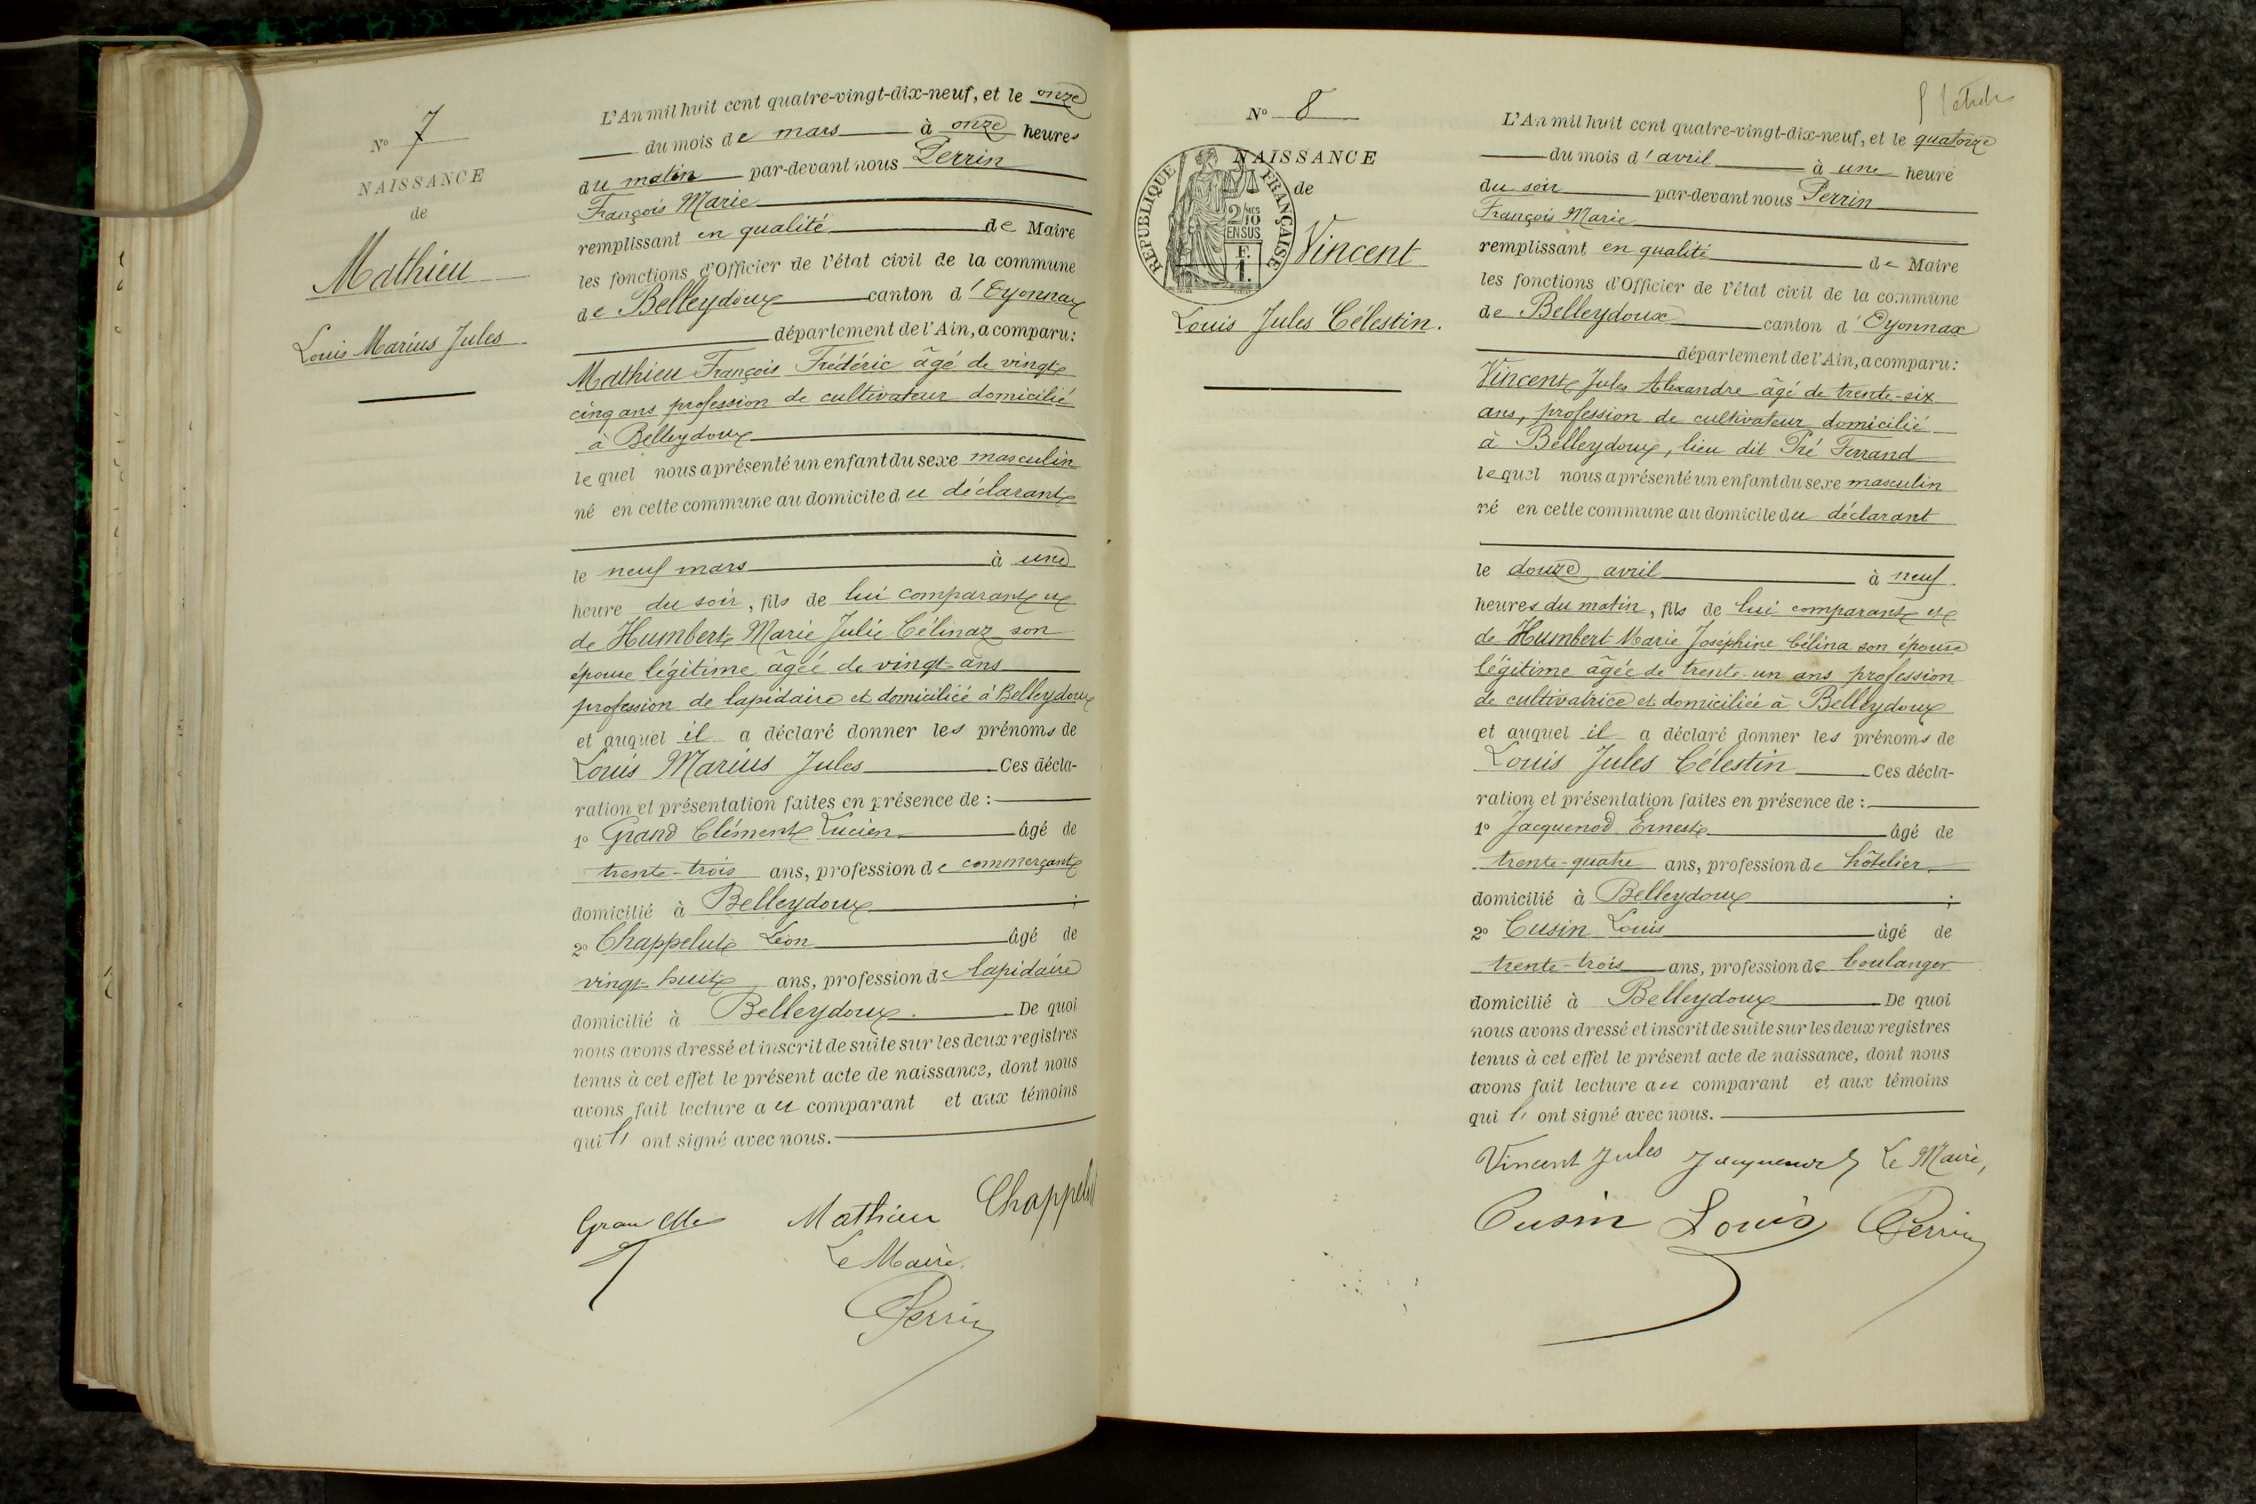 N° 7
NAISSANCE
de
Mathieu
Louis Marius Jules
L'An mil huit cent quatre-vingt-dix-neuf, et le onze
du mois de mars à onze heures
du matin par-devant nous Perrin
François Marie
remplissant en qualité de Maire
les fonctions d'Officier de l'état civil de la commune
de Belleydoux canton d'Oyonnax
département de l'Ain, a comparu:
Mathieu François Frédéric âgé de vingt
cinq ans profession de cultivateur domicilié
à Belleydoux
lequel nous a présenté un enfant du sexe masculin
né en cette commune au domicile du déclarant
le neuf mars à une
heure du soir, fils de lui comparant et
de Humbert Marie Julie Célinaz son
épouse légitime âgée de vingt-ans
profession de lapidaire et domiciliée à Belleydoux
et auquel il a déclaré donner les prénoms de
Louis Marius Jules Ces décla-
ration et présentation faites en présence de :
1° Grand Clément Lucien âgé de
trente-trois ans, profession de commerçant
domicilié à Belleydoux ;
2° Chappelut Léon âgé de
vingt-huit ans, profession de lapidaire
domicilié à Belleydoux. De quoi
nous avons dressé et inscrit de suite sur les deux registres
tenus à cet effet le présent acte de naissance, dont nous
avons fait lecture au comparant et aux témoins
qui ont signé avec nous.
Mathieu Chappelut
Le Maire.
Perrin
N° 8
NAISSANCE
de
RÉPUBLIQUE FRANÇAISE
2/10
EN SUS
F.
1.
Vincent
Louis Jules Célestin.
L'An mil huit cent quatre-vingt-dix-neuf, et le quatorze
du mois d'avril à une heure
du soir par-devant nous Perrin
François Marie
remplissant en qualité de Maire
les fonctions d'Officier de l'état civil de la commune
de Belleydoux canton d'Oyonnax
département de l'Ain, a comparu:
Vincent Jules Alexandre âgé de trente-six
ans, profession de cultivateur domicilié
à Belleydoux, lieu dit Pré Ferrand
lequel nous a présenté un enfant du sexe masculin
né en cette commune au domicile du déclarant
le douze avril à neuf
heures du matin, fils de lui comparant et
de Humbert Marie Joséphine Célina son épouse
légitime âgée de trente-un ans profession
de cultivatrice et domiciliée à Belleydoux
et auquel il a déclaré donner les prénoms de
Louis Jules Célestin Ces décla-
ration et présentation faites en présence de :
1° Jacquenod Ernest âgé de
trente-quatre ans, profession de hôtelier
domicilié à Belleydoux ;
2° Cusin Louis âgé de
trente-trois ans, profession de boulanger
domicilié à Belleydoux De quoi
nous avons dressé et inscrit de suite sur les deux registres
tenus à cet effet le présent acte de naissance, dont nous
avons fait lecture au comparant et aux témoins
qui ont signé avec nous.
Vincent Jules Jacquenod Le Maire,
Cusin Louis Perrin